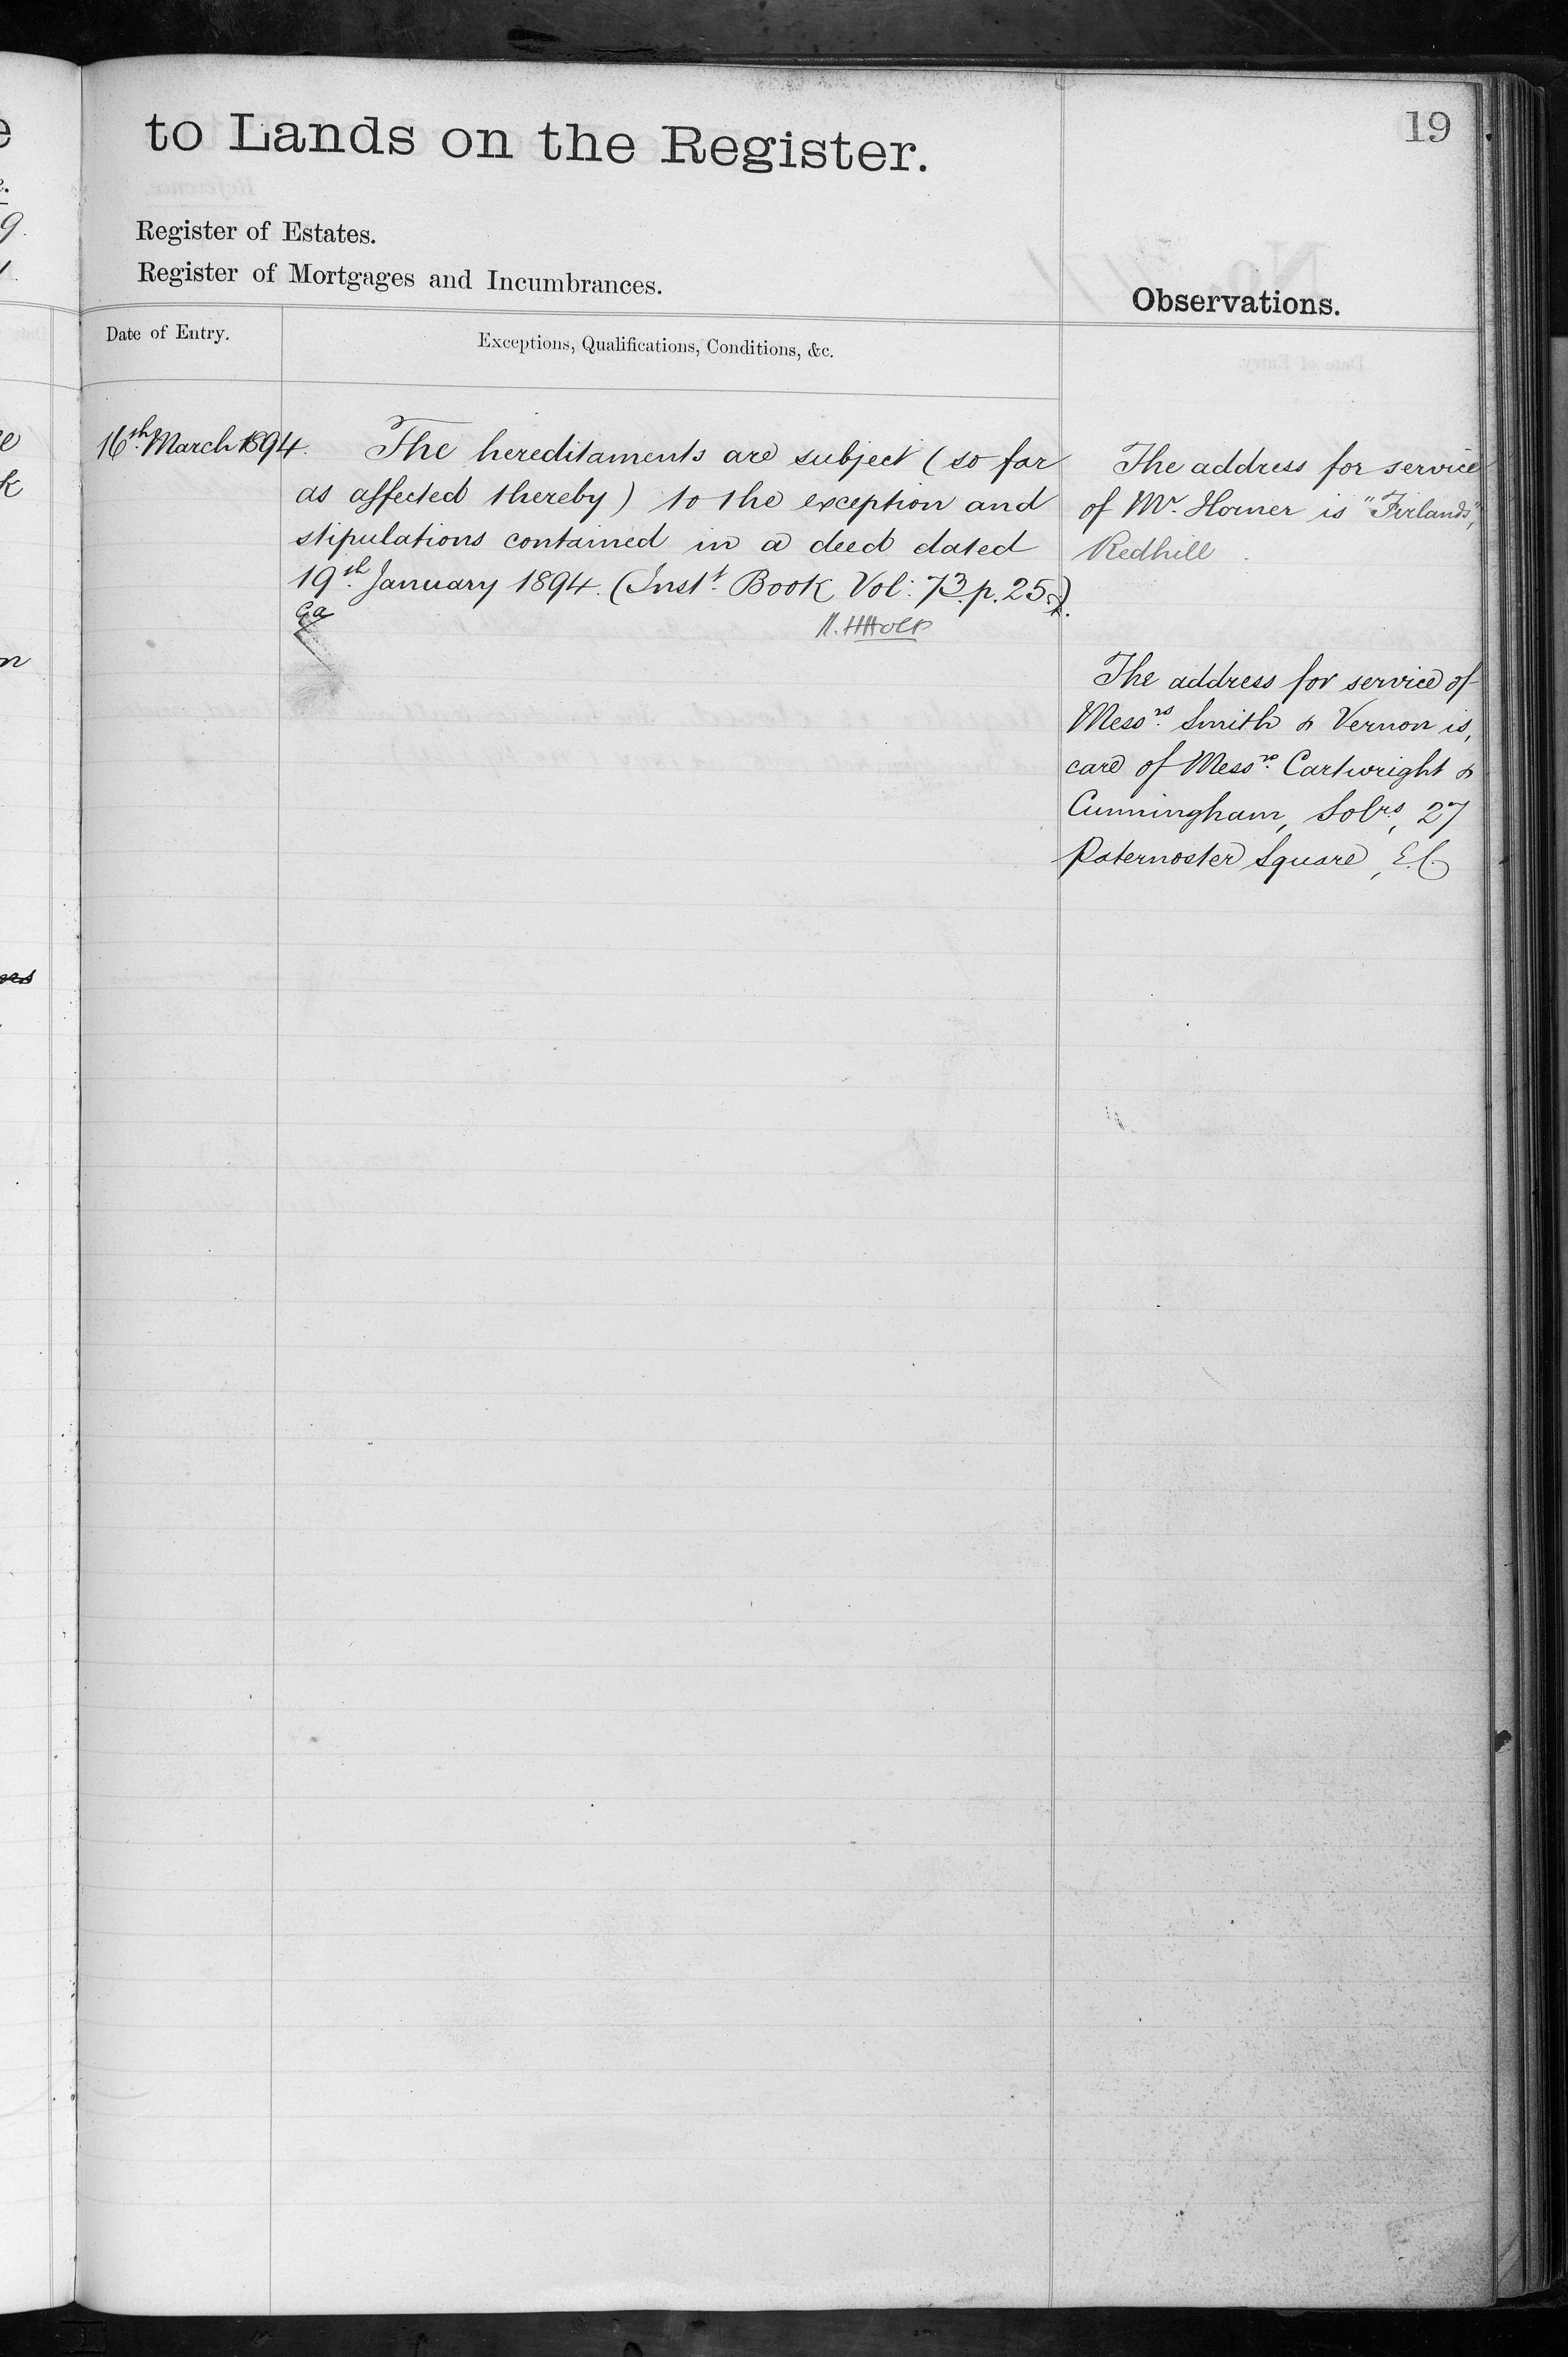 to Lands on the Register.
19
Register of Estates.
Register of Mortgages and Incumbrances.
Observations.
Date of Entry.
Exceptions, Qualifications, Conditions, &c.
16th March 1894.
The hereditaments are subject (so far
as affected thereby) to the exception and
stipulations contained in a deed dated
19th January 1894. (Inst. Book Vol: 73. p. 25
The address for service
of Mr. Horner is "Firlands",
Redhill.
The address for service of
Messrs. Smith & Vernon is,
care of Messrs. Cartwright &
Cunningham, Solrs, 27
Paternoster Square, E.C.